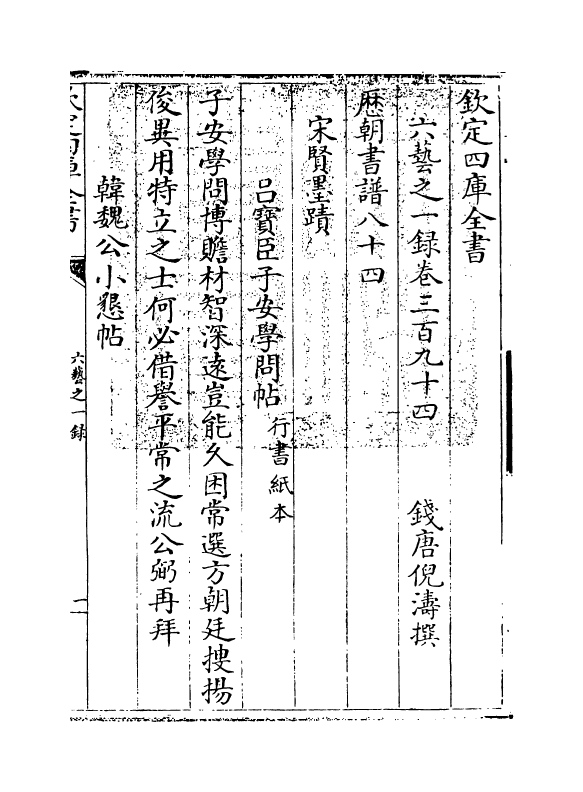 欽定四庫全書
六藝之一録卷三百九十四
錢唐倪濤撰
歴朝書譜八十四
宋賢墨蹟
吕寳臣子安學問帖行書紙本
子安學問博贍材智深遠豈能久困常選方朝廷搜揚
俊異用特立之士何必借譽平常之流公弼再拜
韓魏公小懇帖
六藝之一録